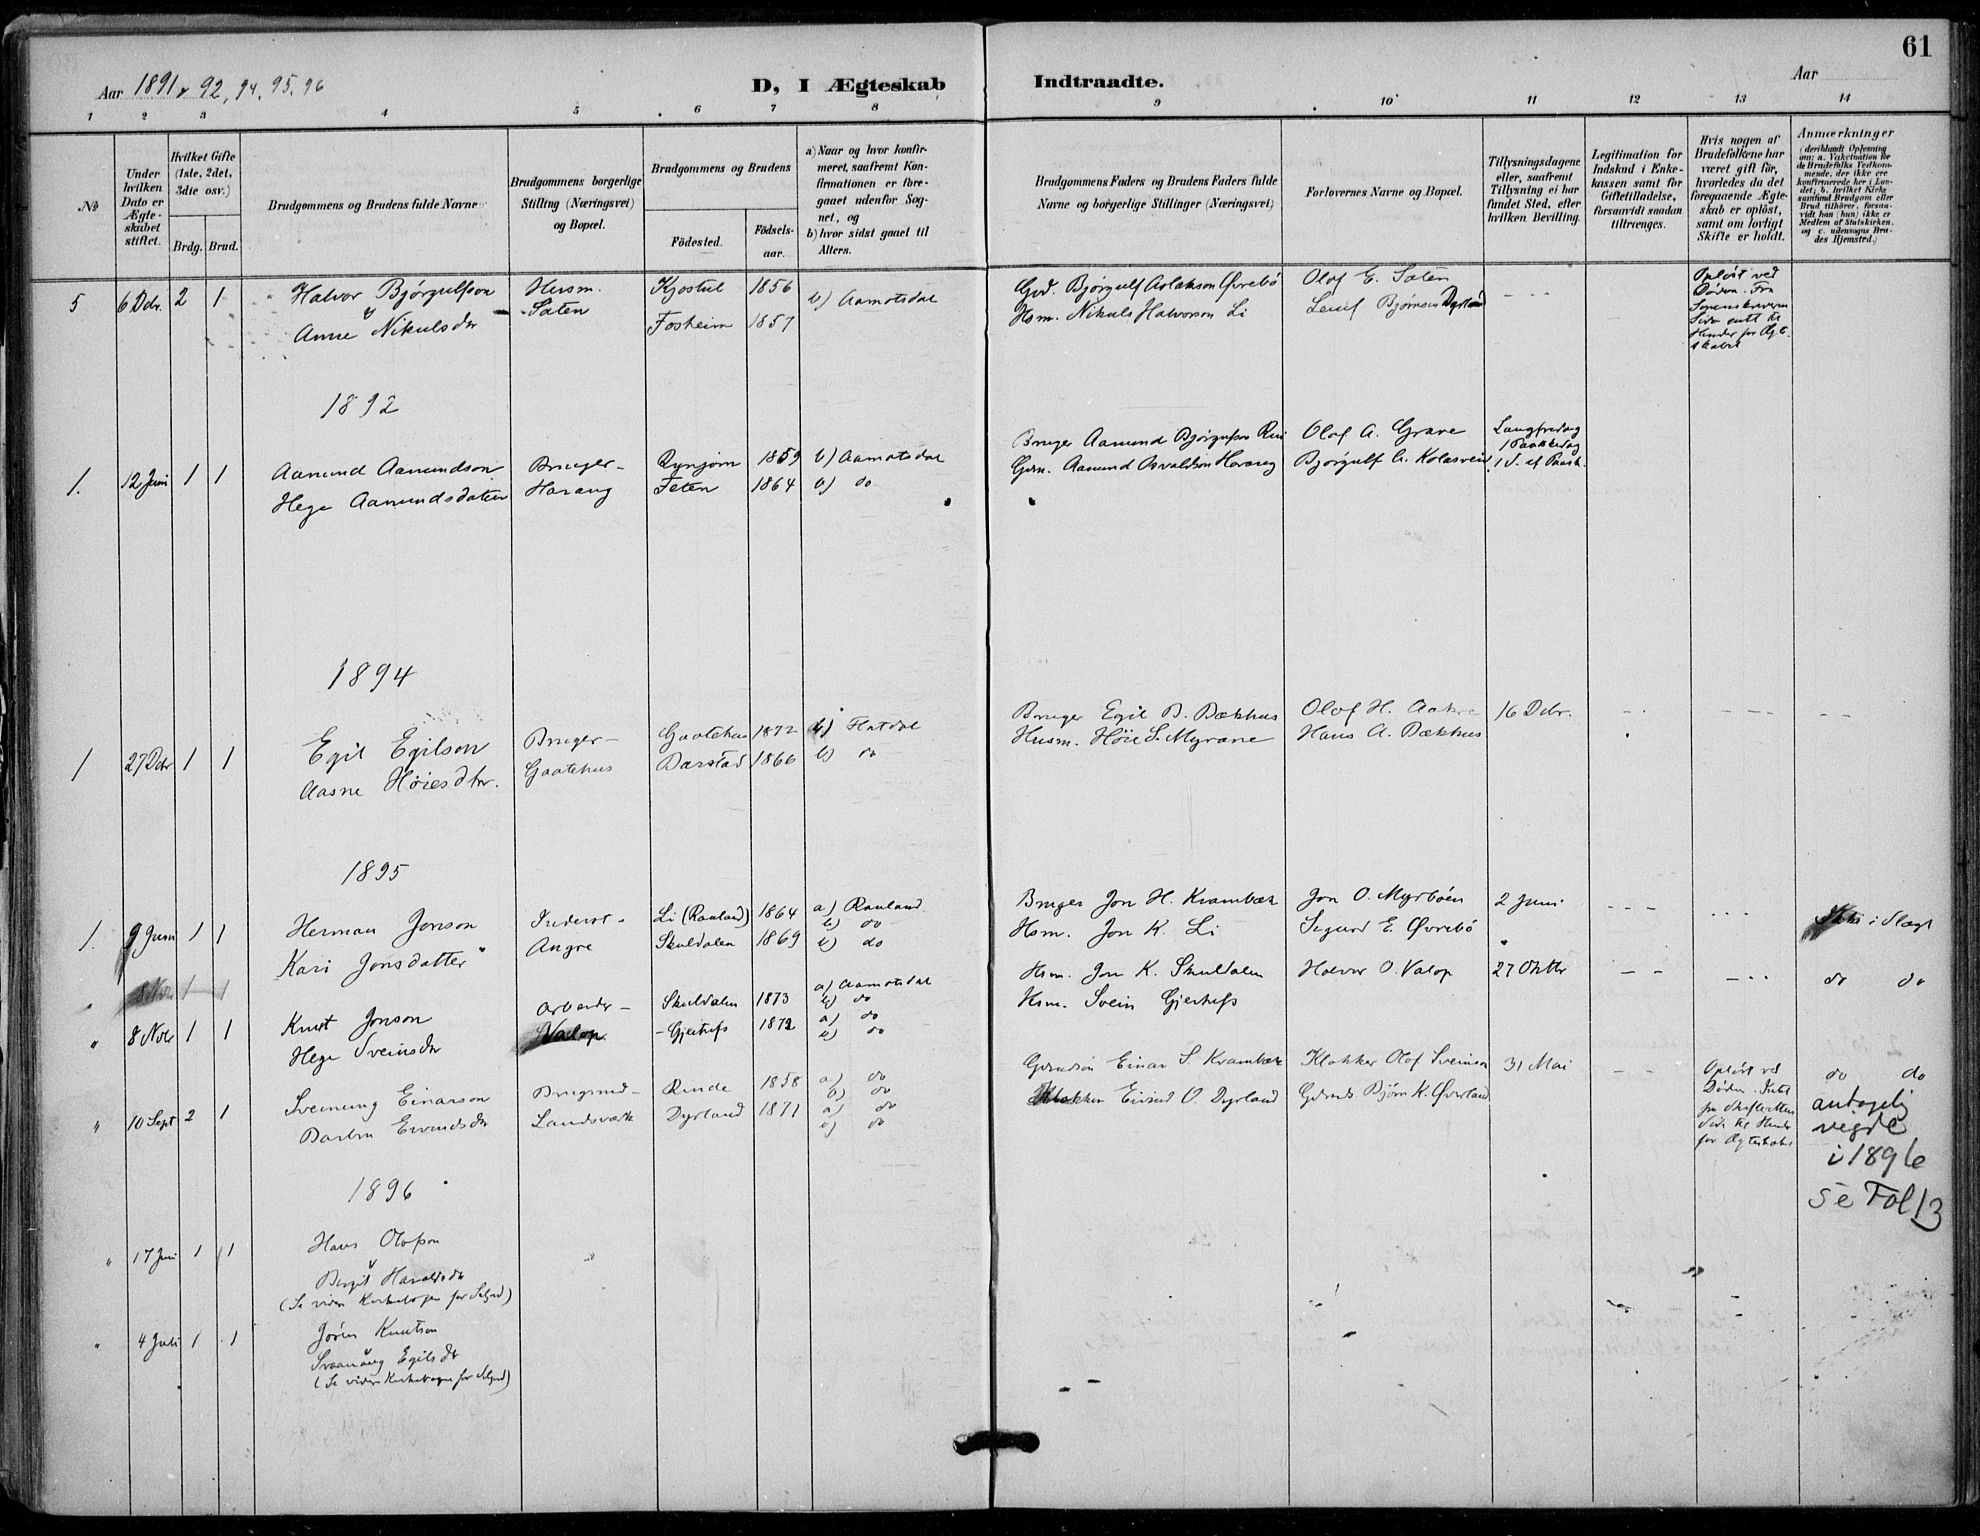 61
Aar 1891 & 92, 94. 95. 96
D, I Ægteskab Indtraadte.
Aar
1 2 3 4 5 6 7 8 9 10 11 12 13 14
No
Under hvilken Dato er Ægteskabet stiftet.
Hvilket Gifte (1ste, 2det, 3die osv.)
Brdg. Brud.
Brudgommens og Brudens fulde Navne
Brudgommens borgerlige Stilling (Næringsvei) og Bopæl.
Brudgommens og Brudens
Fødested.
Fødselsaar.
a) Naar og hvor konfirmeret, saafremt Konfirmationen er foregaaet udenfor Sognet, og
b) hvor sidst gaaet til Alters.
Brudgommens Faders og Brudens Faders fulde Navne og borgerlige Stillinger (Næringsvei)
Forlovernes Navne og Bopæl.
Tillysningsdagene eller, saafremt Tillysning ei har fundet Sted, efter hvilken Bevilling.
Legitimation for Indskud i Enkekassen samt for Giftetilladelse, forsaavidt saadan tiltrænges.
Hvis nogen af Brudefolkene har været gift før, hvorledes da det foregaaende Ægteskab er opløst, samt om lovligt Skifte er holdt.
Anmærkninger (deriblandt Oplysning om: a. Vakcination for de Brudefolks Vedkommende, der ikke ere konfirmerede her i Landet; b. hvilket Kirkesamfund Brudgom eller Brud tilhører, forsaavidt han (hun) ikke er Medlem af Statskirken, og c. udensogns Brudes Hjemsted.)
5 6 Dcbr. 2 1 Halvor Bjørgulfson Husm. Kjostul 1856 b) Aamotsdal Gbd. Bjørgulf Aslakson Øvrebø Olaf E. Saten - - - Opløst ved
& Saten
Anne Nikulsdtr Fosheim 1857 Hsm. Nikuls Halvorson Li Leiuf Bjørnson Dyrland Døden. Fra
1892
1. 12 Juni 1 1 Aamund Aamundson Bruger - Rynjom 1859 b) Aamotsdal Bruger Aamund Bjørgulfson Rui Olaf A. Grave Langfredag
1 Paaskedag
Hege Aamundsdatter Harang Feten 1864 b) do Gbrn. Aamund Osvaldson Harang Bjørgulf A. Kolasveid 1 S. ef Paask.
1894
1 27 Dcbr 1 1 Egil Egilson Bruger - Gaatehus 1872 b) Flatdal Bruger Egil B. Bækhus Olaf H. Aakre 16 Dcbr.
Aasne Høiesdtr. Gaatehus Barstad 1866 b) do Husm. Høie S. Myrane Hans A. Bækhus
1895
1. 9 Juni 1 1 Herman Jonson Inderst - Li (Rauland) 1864 a) Rauland b) do Bruger Jon H. Krambæk Jon O. Myrbøen 2 Juni i Slægt
Kari Jonsdatter Angre Skuldalen 1869 b) do Hsm. Jon K. Li Sigurd E. Øvrebø
" 8 Nov 1 1
" 8 Nov 1 1 Knut Jonson Arbeider - Skuldalen 1873 a) Aamotsdal b) do Hsm. Jon K. Skuldalen Halvor O. Valop 27 Oktbr do do
Hege Sveinsdtr Valop - Gjerhefs 1872 a) do b) do Hsm. Svein Gjerhefs
" 10 Sept 2 1 Sveinung Einarson Brugsmd - Rinde 1858 a) do b) do Gbrndsøn Einar S. Krambæk Klokker Olof Sveinson 31 Mai Opløst ved do do
Barbro Eivindsdtr Landsverk Dyrland 1871 a) do b) do Klokker Eivind O. Dyrland Gbrnds. Bjørn K. Øverland Døden.
antagelig
vigde
i 1896
Se Fol 13
1896
" 17 Juni 1 1 Hans Olofson
&
Birgit Haraldsdtr
(Se videre Kirkebogen for Seljord)
" 4 Juli 1 1 Jøren Knutson
&
Svanaug Egilsdtr
(Se videre Kirkebogen for Seljord)